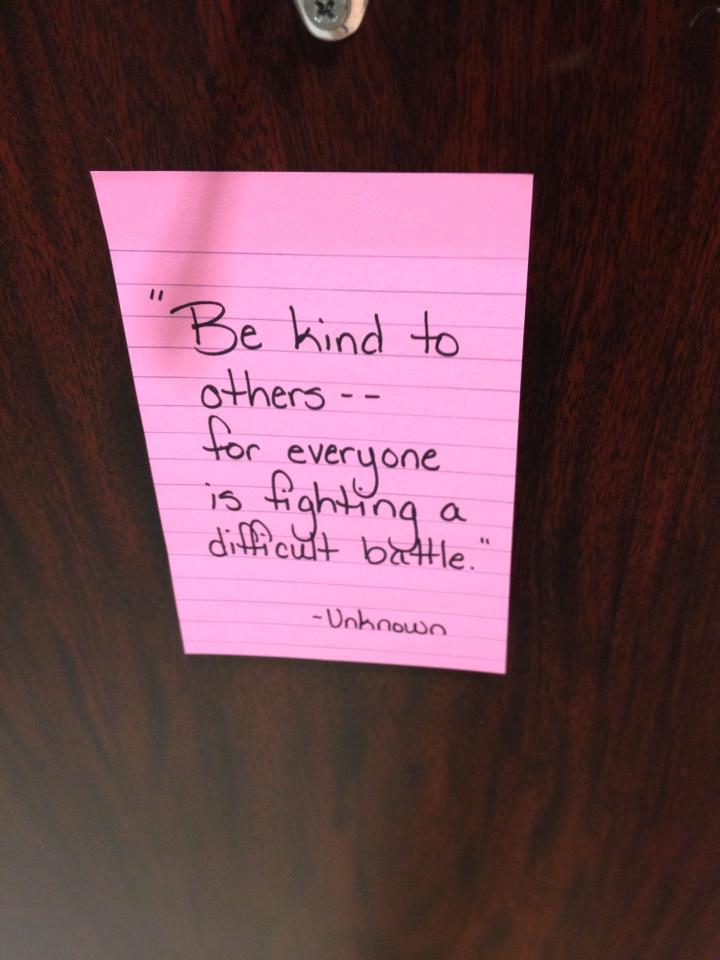 "Be kind to
others --
for everyone
is fighting a
difficult battle."
-Unknown